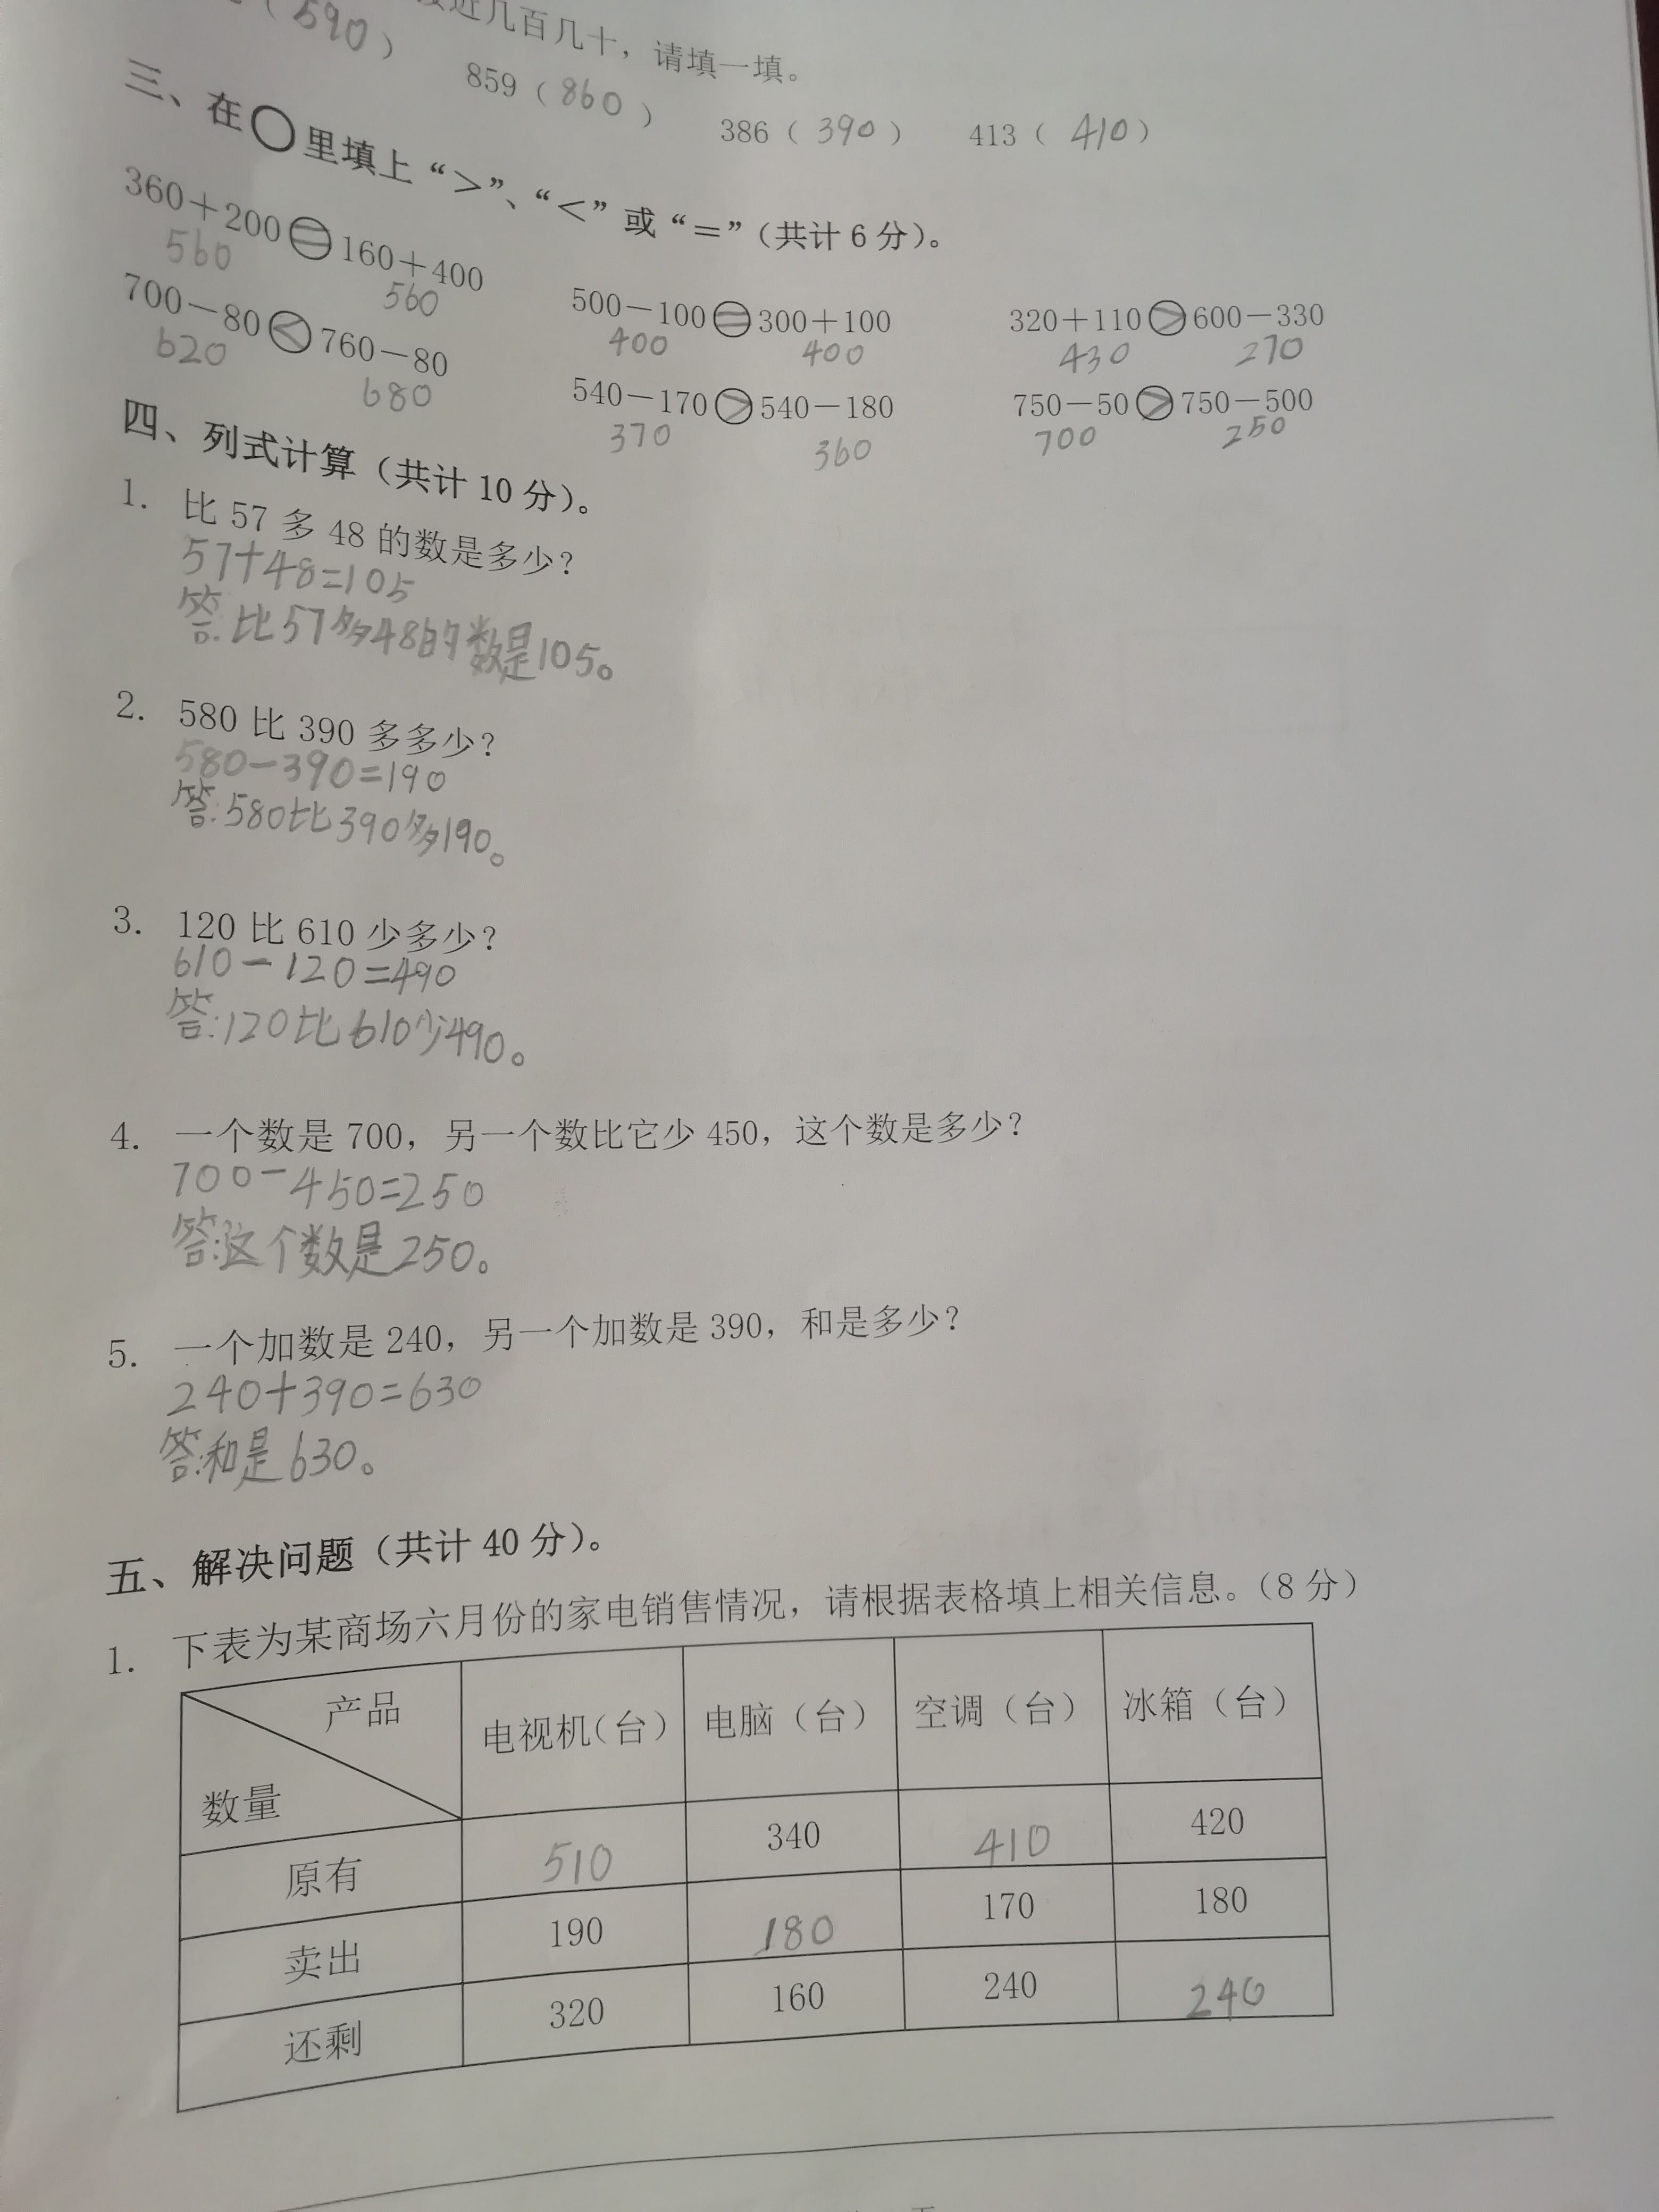 近几百几十，请填一填。
（590） 859（860） 386（390） 413（410）
三、在○里填上“＞”、“＜”或“＝”（共计6分）。
360＋200＝160＋400 500－100＝300＋100 320＋110＞600－330
560 560 400 400 430 270
700－80＜760－80 540－170＞540－180 750－50＞750－500
620 680 370 360 700 250
四、列式计算（共计10分）。
1. 比57多48的数是多少？
57+48=105
答:比57多48的数是105。
2. 580比390多多少？
580-390=190
答:580比390多190。
3. 120比610少多少？
610-120=490
答:120比610少490。
4. 一个数是700，另一个数比它少450，这个数是多少？
700-450=250
答:这个数是250。
5. 一个加数是240，另一个加数是390，和是多少？
240+390=630
答:和是630。
五、解决问题（共计40分）。
1. 下表为某商场六月份的家电销售情况，请根据表格填上相关信息。（8分）
产品 数量 电视机（台） 电脑（台） 空调（台） 冰箱（台）
原有 510 340 410 420
卖出 190 180 170 180
还剩 320 160 240 240